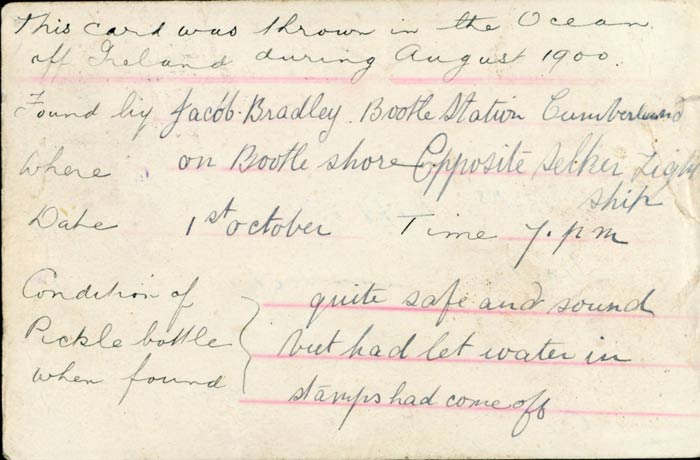 This card was thrown in the Ocean
off Ireland during August 1900.
Found by Jacob Bradley. Bootle Station Cumberland
Where on Bootle shore Opposite Selker Light
ship
Date 1st october Time 7. p m
Condition of
Pickle bottle
when found
quite safe and sound
but had let water in
stamps had come off